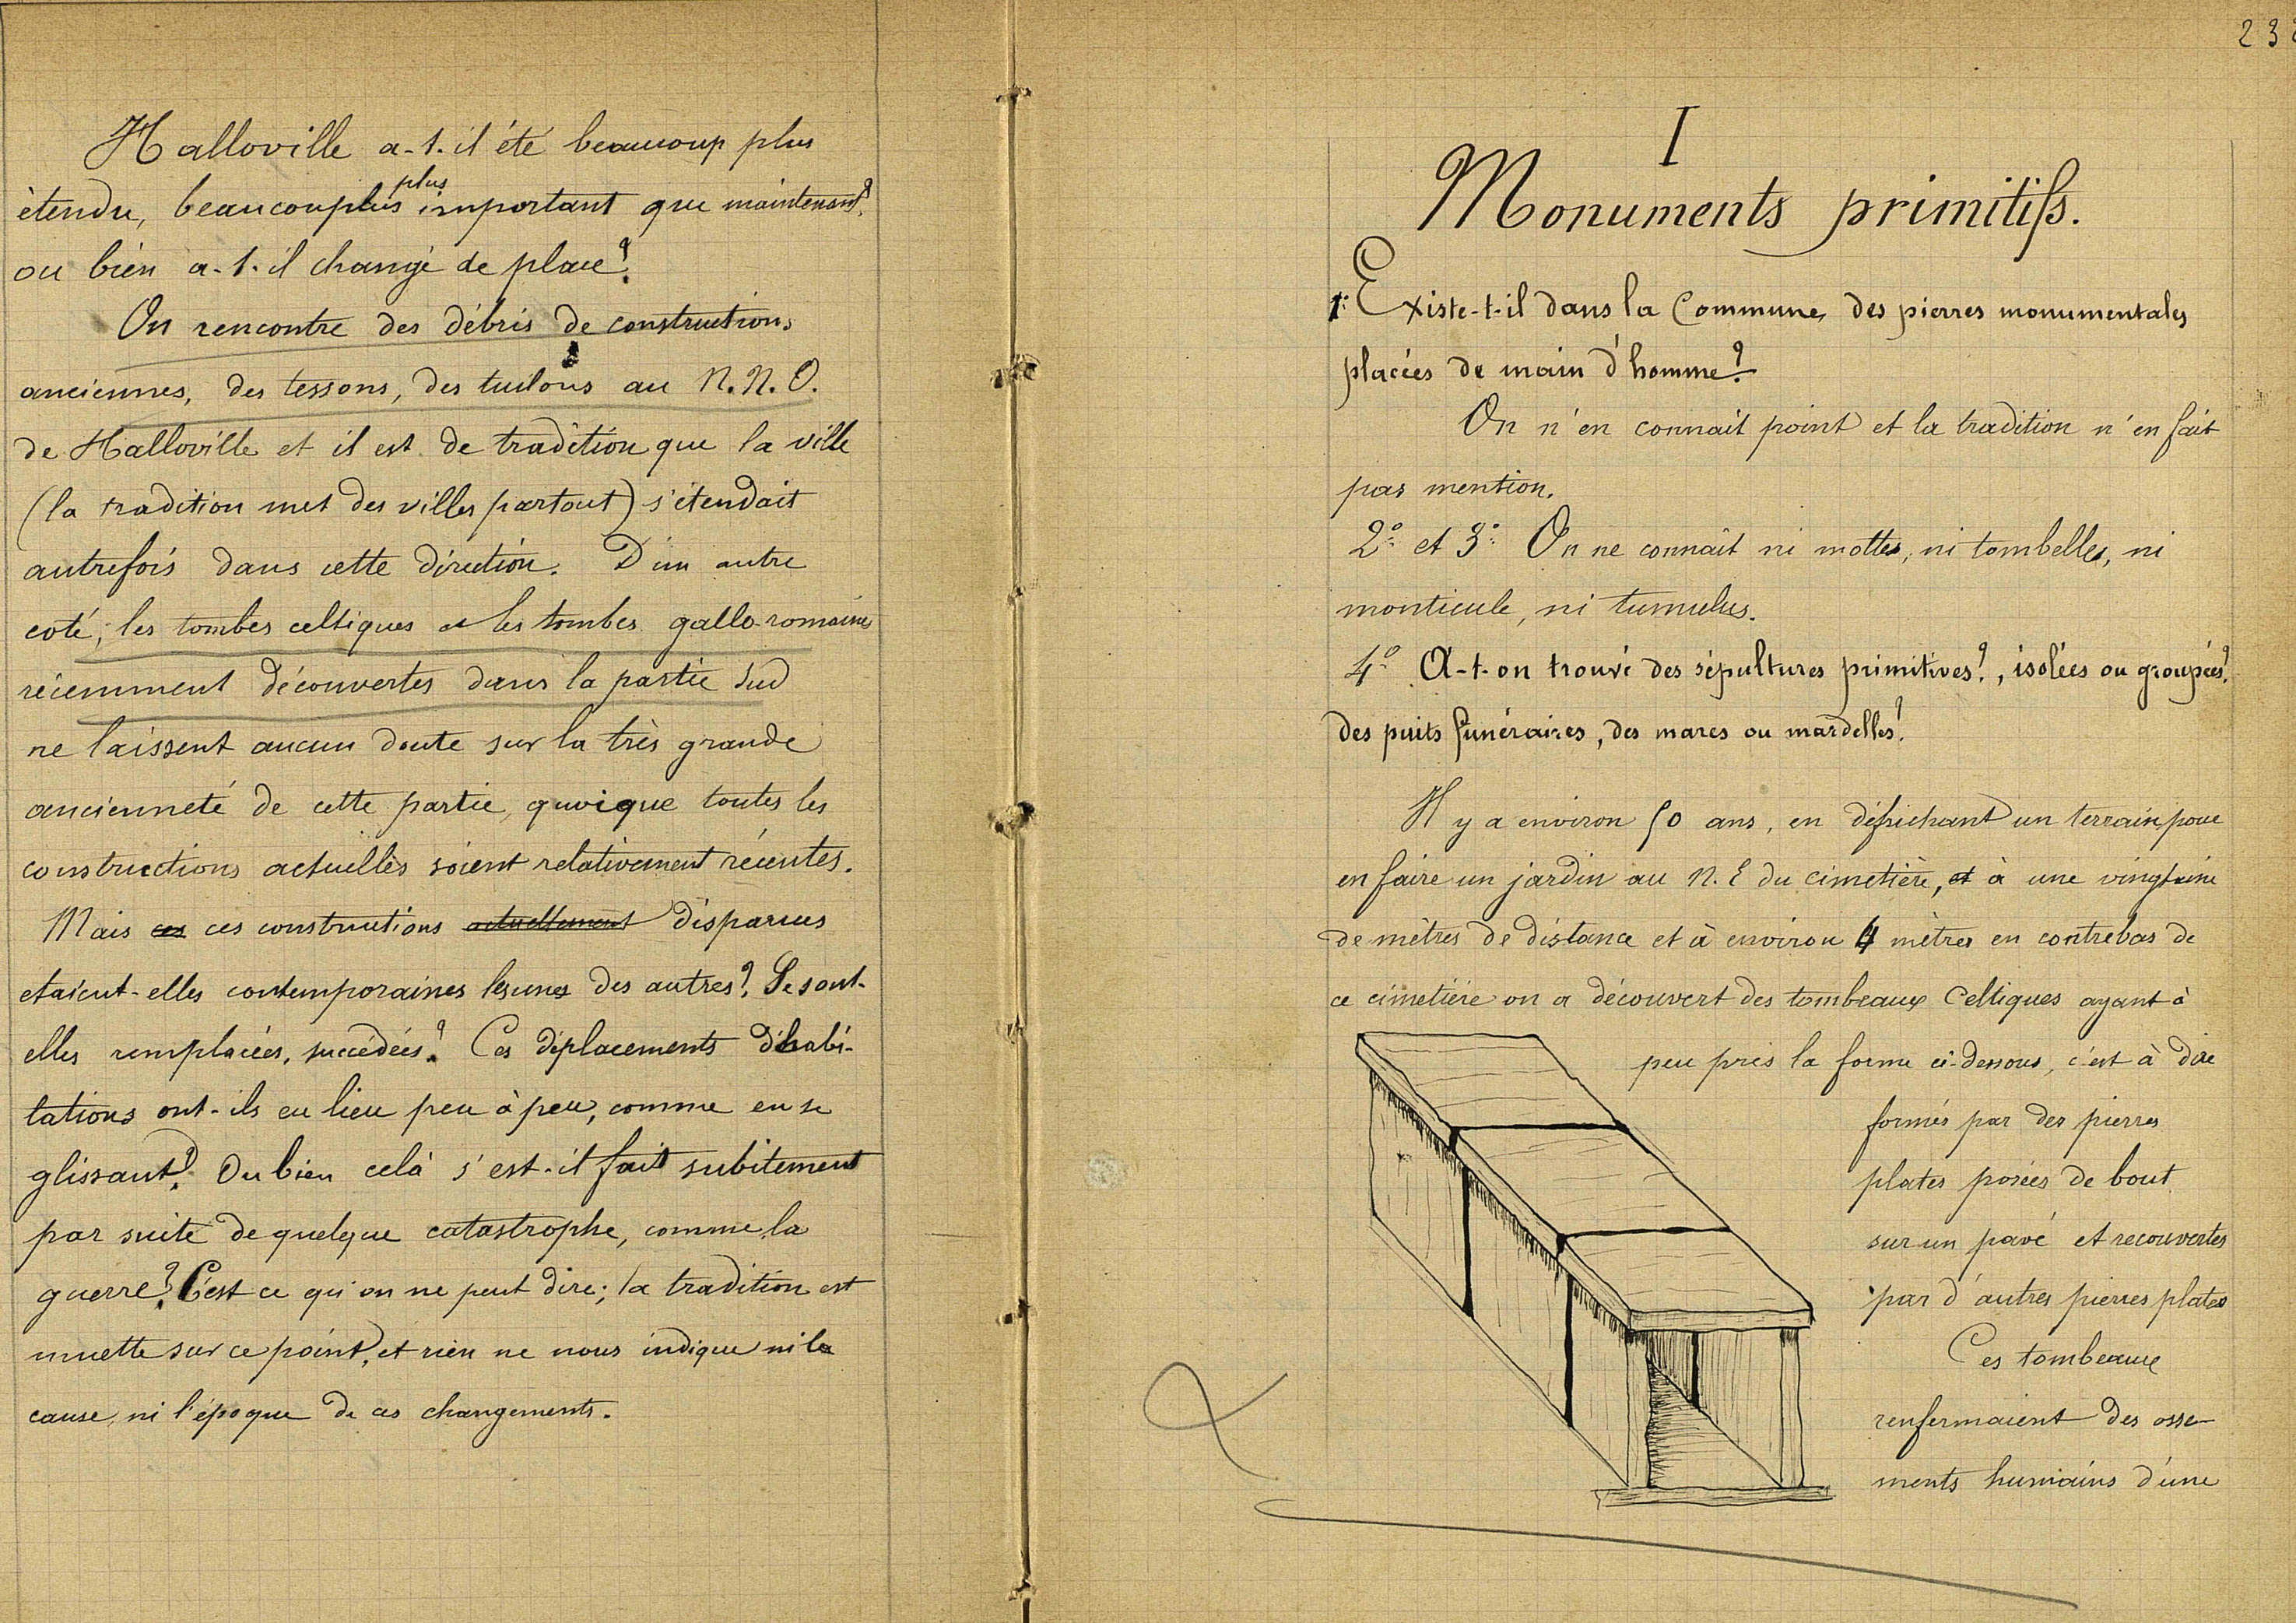 Halloville a-t-il été beaucoup plus
étendu, beaucouplus plus important que maintenant?
ou bien a-t-il changé de place?
On rencontre des débris de constructions
anciennes, des tessons, des tuilons au N.N.O.
de Halloville et il est de tradition que la ville
(la tradition met des villes partout) s'étendait
autrefois dans cette direction. D'un autre
coté, les tombes celtiques et les tombes gallo-romaines
récemment découvertes dans la partie Sud
ne laissent aucun doute sur la très grande
ancienneté de cette partie, quoique toutes les
constructions actuelles soient relativement récentes.
Mais ces ces constructions actuellement disparues
etaient-elles contemporaines lesunes des autres? Se sont-
elles remplacées, succédées? Ces déplacements d'habi-
tations ont-ils eu lieu peu à peu, comme en se
glissant? Ou bien celà s'est-il fait subitement
par suite de quelque catastrophe, comme la
guerre? C'est ce qu'on ne peut dire; la tradition est
muette sur ce point, et rien ne nous indique ni la
cause, ni l'époque de ces changements.
23
I
Monuments primitifs.
1º Existe-t-il dans la Commune des pierres monumentales
placées de main d'homme?
On n'en connait point et la tradition n'en fait
pas mention.
2º et 3º On ne connaît ni mottes, ni tombelles, ni
monticule, ni tumulus.
4º A-t-on trouvé des sépultures primitives?, isolées ou groupées?
des puits funéraires, des mares ou mardelles?
Il y a environ 50 ans, en défrichant un terrain pour
en faire un jardin au N.E du cimetière, et à une vingtaine
de mètres de distance et à environ 4 mètres en contrebas de
ce cimetière on a découvert des tombeaux Celtiques ayant à
peu près la forme ci-dessous, c'est à dire
formés par des pierres
plates posées de bout
sur un pavé et recouvertes
par d'autres pierres plates
Ces tombeaux
renfermaient des osse-
ments humains d'une